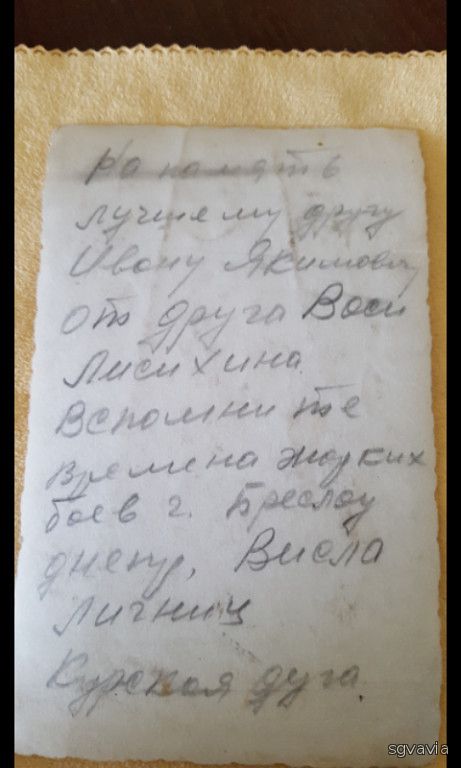 На память
лучшему другу
Ивану Якимовичу
от друга Васи
Лисихина.
Вспомни те
времена жарких
боев г. Бреслау
днепр, Висла
Личниц
Курская дуга.
sgvavia